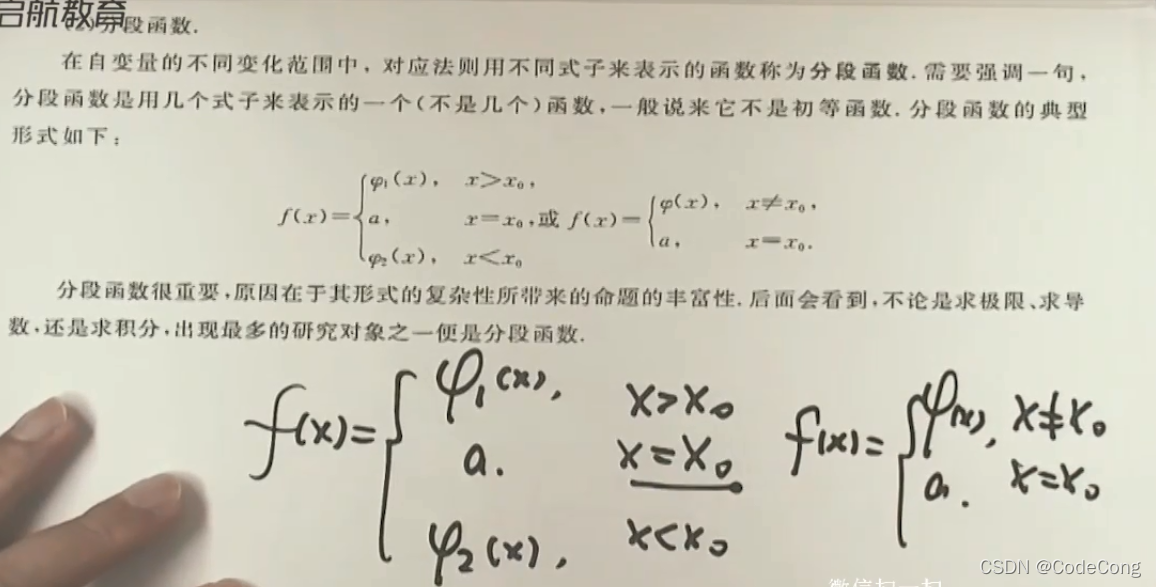 启航教育
(2)分段函数.
在自变量的不同变化范围中，对应法则用不同式子来表示的函数称为分段函数.需要强调一句，
分段函数是用几个式子来表示的一个(不是几个)函数,一般说来它不是初等函数.分段函数的典型
形式如下：
f(x)={φ₁(x)， x>x₀，
a， x=x₀，
φ₂(x)， x<x₀
或 f(x)={φ(x)， x≠x₀，
a， x=x₀.
分段函数很重要,原因在于其形式的复杂性所带来的命题的丰富性.后面会看到,不论是求极限、求导
数,还是求积分,出现最多的研究对象之一便是分段函数.
f(x)={φ₁(x), x>x₀
a. x=x₀
φ₂(x), x<x₀
f(x)={φ(x), x≠x₀
a. x=x₀
微信扫一扫
CSDN @CodeCong